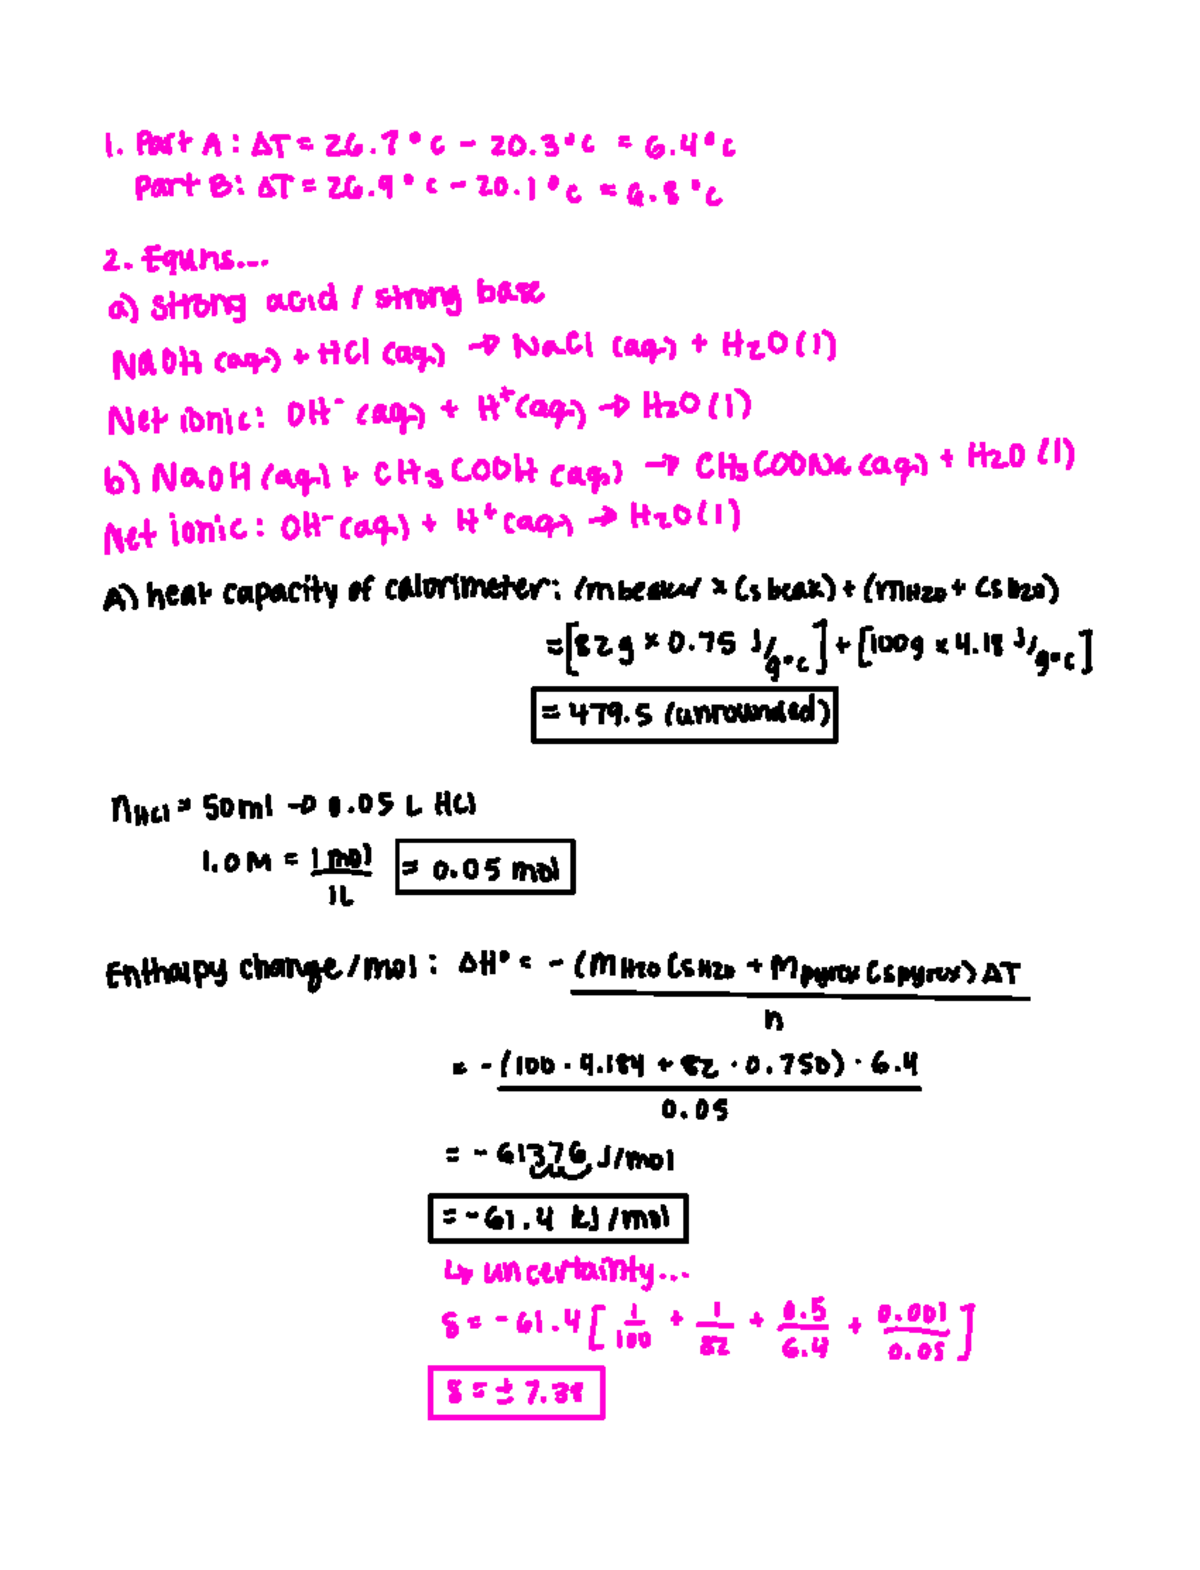 1. Part A: ΔT = 26.7°C - 20.3°C = 6.4°C
Part B: ΔT = 26.9°C - 20.1°C = 6.8°C
2. Equns...
a) strong acid / strong base
NaOH (aq) + HCl (aq) → NaCl (aq) + H2O (l)
Net ionic: OH⁻ (aq) + H⁺ (aq) → H2O (l)
b) NaOH (aq) + CH3COOH (aq) → CH3COONa (aq) + H2O (l)
Net ionic: OH⁻ (aq) + H⁺ (aq) → H2O (l)
A) heat capacity of calorimeter: (m beaker × Cs beak) + (mH2O + Cs H2O)
= [82g × 0.75 J/g°C] + [100g × 4.18 J/g°C]
= 479.5 (unrounded)
nHCl = 50ml → 0.05 L HCl
1.0 M = 1 mol / 1L = 0.05 mol
Enthalpy change/mol: ΔH° = - (mH2O CsH2O + Mpyrex Cspyrex) ΔT / n
= - (100 · 4.184 + 82 · 0.750) · 6.4 / 0.05
= - 61376 J/mol
= -61.4 kJ/mol
↳ uncertainty...
δ = -61.4 [1/100 + 1/82 + 0.5/6.4 + 0.001/0.05]
δ = ± 7.38